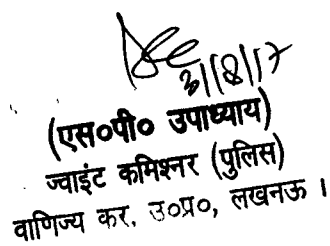 3/18/17
(एस०पी० उपाध्याय)
ज्वाइंट कमिश्नर (पुलिस)
वाणिज्य कर, उ०प्र०, लखनऊ ।